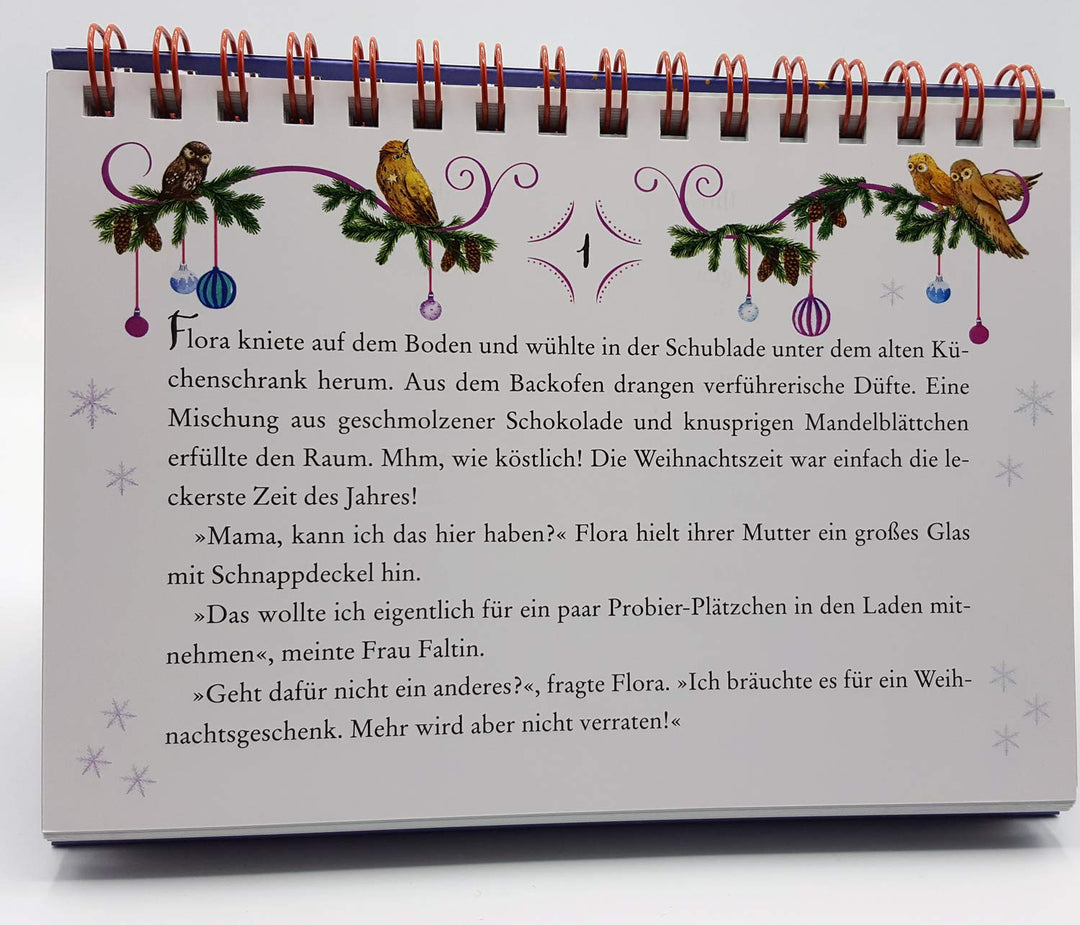 1
Flora kniete auf dem Boden und wühlte in der Schublade unter dem alten Kü-
chenschrank herum. Aus dem Backofen drangen verführerische Düfte. Eine
Mischung aus geschmolzener Schokolade und knusprigen Mandelblättchen
erfüllte den Raum. Mhm, wie köstlich! Die Weihnachtszeit war einfach die le-
ckerste Zeit des Jahres!
»Mama, kann ich das hier haben?« Flora hielt ihrer Mutter ein großes Glas
mit Schnappdeckel hin.
»Das wollte ich eigentlich für ein paar Probier-Plätzchen in den Laden mit-
nehmen«, meinte Frau Faltin.
»Geht dafür nicht ein anderes?«, fragte Flora. »Ich bräuchte es für ein Weih-
nachtsgeschenk. Mehr wird aber nicht verraten!«